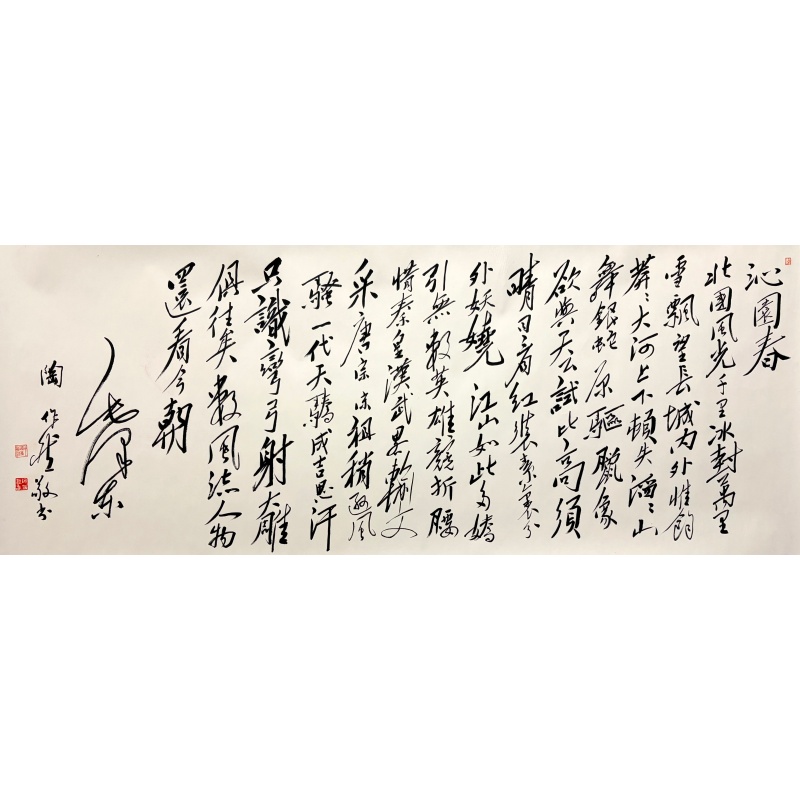 沁園春
北國風光千里冰封萬里
雪飄望長城內外惟餘
莽〻大河上下頓失滔〻山
舞銀蛇原驅臘象
欲與天公試比高須
晴日看紅裝素裹分
外妖嬈江山如此多嬌
引無數英雄競折腰
惜秦皇漢武略輸文
采唐宗宋祖稍遜風
騷一代天驕成吉思汗
只識彎弓射大雕
俱往矣數風流人物
還看今朝
毛澤東
陶作敬書